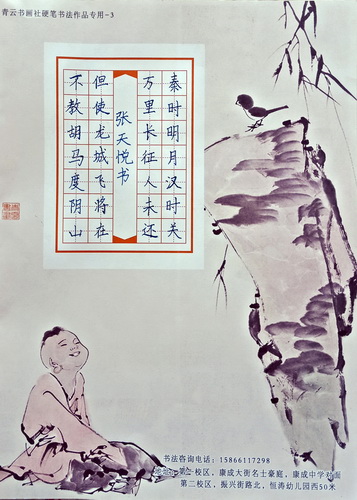 青云书画社硬笔书法作品专用-3
秦时明月汉时关
万里长征人未还
张天悦书
但使龙城飞将在
不教胡马度阴山
书法咨询电话：15866117298
地址：第一校区，康成大街名士豪庭，康成中学对面
第二校区，振兴街路北，恒涛幼儿园西50米